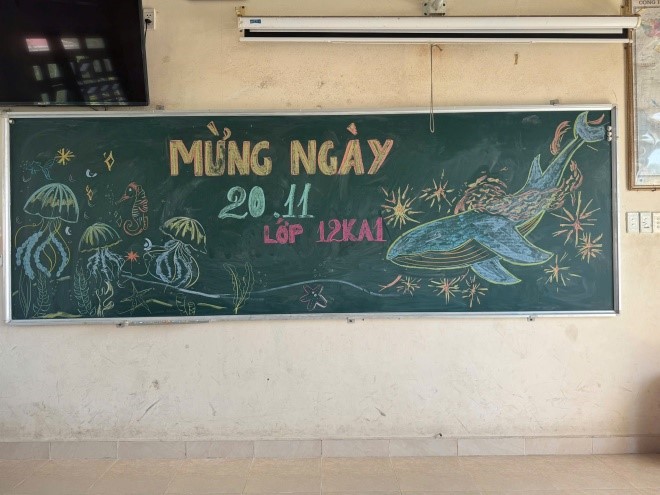 MỪNG NGÀY
20.11
LỚP 12KA1